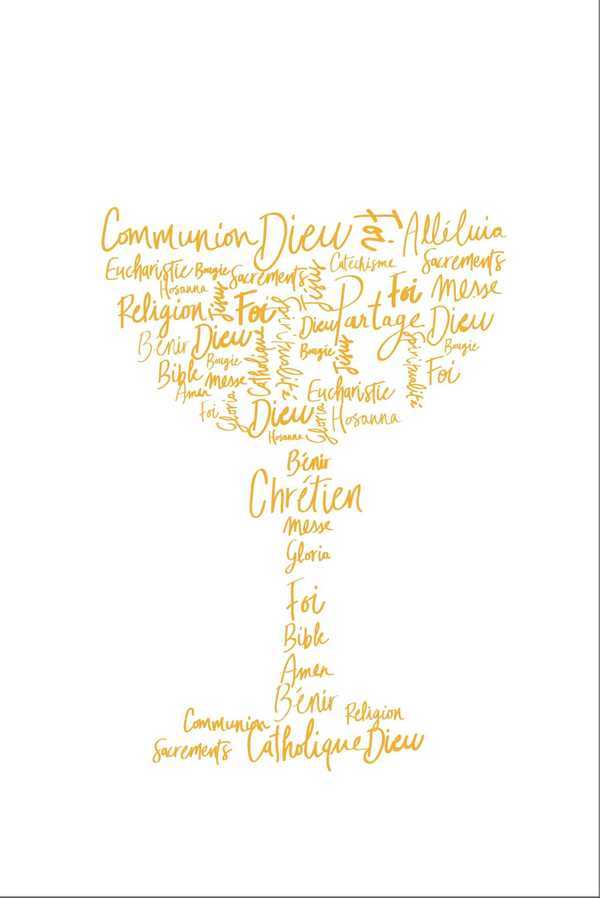 Communion Dieu Foi Alléluia
Eucharistie Bougie Sacrements Jésus Catéchisme Sacrements
Hosanna Jésus Foi Messe
Religion Foi Spiritualité Partage Dieu
Bénir Dieu Catholique Dieu Jésus Spiritualité Bougie
Bible Bougie Bougie Foi
Messe Eucharistie
Amen Gloria Gloria
Foi Dieu Hosanna
Hosanna
Bénir
Chrétien
Messe
Gloria
Foi
Bible
Amen
Bénir
Communion Religion
Sacrements Catholique Dieu